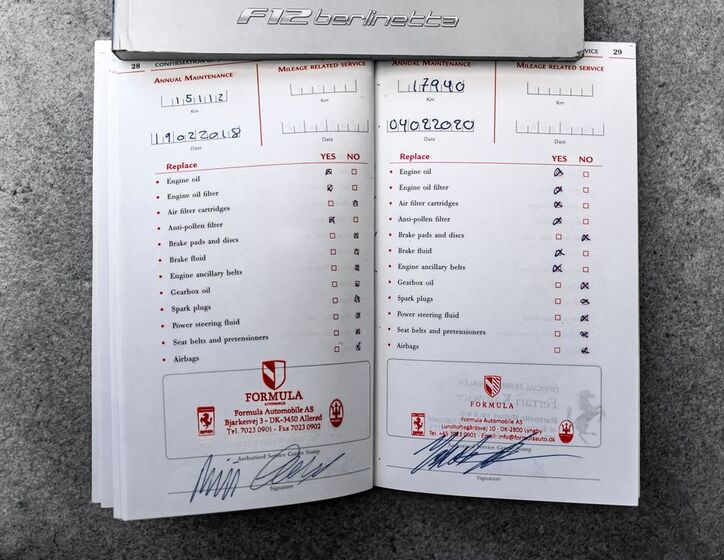 F12berlinetta
28
CONFIRMATION OF
ANNUAL MAINTENANCE
MILEAGE RELATED SERVICE
15112
Km
19022018
Date
Date
Replace YES NO
• Engine oil
• Engine oil filter
• Air filter cartridges
• Anti-pollen filter
• Brake pads and discs
• Brake fluid
• Engine ancillary belts
• Gearbox oil
• Spark plugs
• Power steering fluid
• Seat belts and pretensioners
• Airbags
FORMULA
AUTOMOBILE
Formula Automobile AS
Bjarkesvej 3 - DK-3450 Allerød
Tel. 7023 0901 - Fax 7023 0902
Authorised Service Centre Stamp
Signature
VICE 29
ANNUAL MAINTENANCE
MILEAGE RELATED SERVICE
17940
Km
Km
04022020
Date
Date
Replace YES NO
• Engine oil
• Engine oil filter
• Air filter cartridges
• Anti-pollen filter
• Brake pads and discs
• Brake fluid
• Engine ancillary belts
• Gearbox oil
• Spark plugs
• Power steering fluid
• Seat belts and pretensioners
• Airbags
FORMULA
Formula Automobile AS
Lundtoftegårdsvej 10 - DK-2800 Lyngby
Tel. +45 7023 0901 - Email: info@formulaauto.dk
Service Centre Stamp
Signature